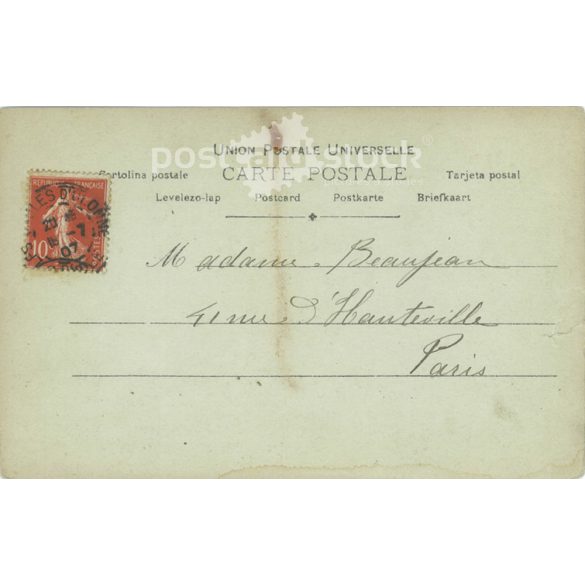 UNION POSTALE UNIVERSELLE
postcard stock
CARTE POSTALE
Cartolina postale Tarjeta postal
Levelezo-lap Postcard Postkarte Briefkaart
REPUBLIQUE FRANÇAISE
10
POSTES
20
07
Madame Beaujean
41 rue d'Hauteville
Paris